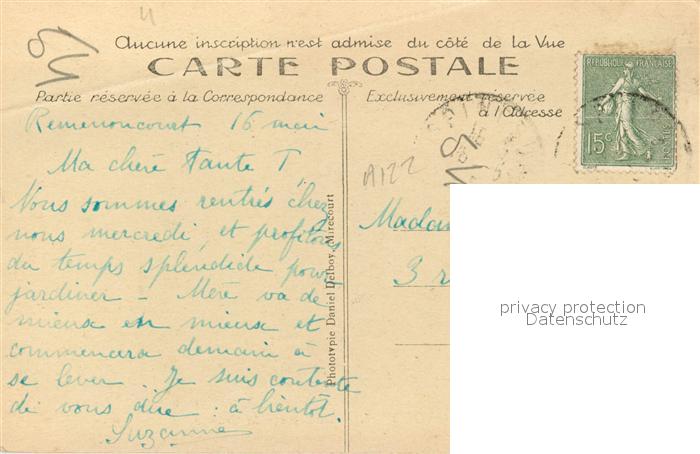 Aucune inscription n'est admise du côté de la Vue
CARTE POSTALE
Partie réservée à la Correspondance
Exclusivement réservée
à l'Adresse
RÉPUBLIQUE FRANÇAISE
15c
A122
Remenoncourt 16 mai
Ma chère tante T,
Nous sommes rentrés chez
nous mercredi, et profitons
du temps splendide pour
jardiner — Mère va de
mieux en mieux et
commencera demain à
se lever. Je suis contente
de vous dire : à bientôt.
Suzanne
Phototypie Daniel Delboy, Mirecourt
Madam
3 r
privacy protection
Datenschutz